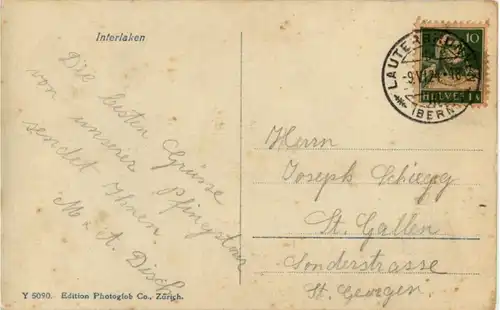 Interlaken
Die besten Grüsse
von unserer Pfingsttour
sendet Ihnen
M. A. Disch
Herrn
Joseph Schiegg
St. Gallen
Sonderstrasse
St. Georgen
10
HELVETIA
LAUTERBRUNNEN
-9.VI.24.-18
(BERN)
Y 5090. Edition Photoglob Co., Zürich.